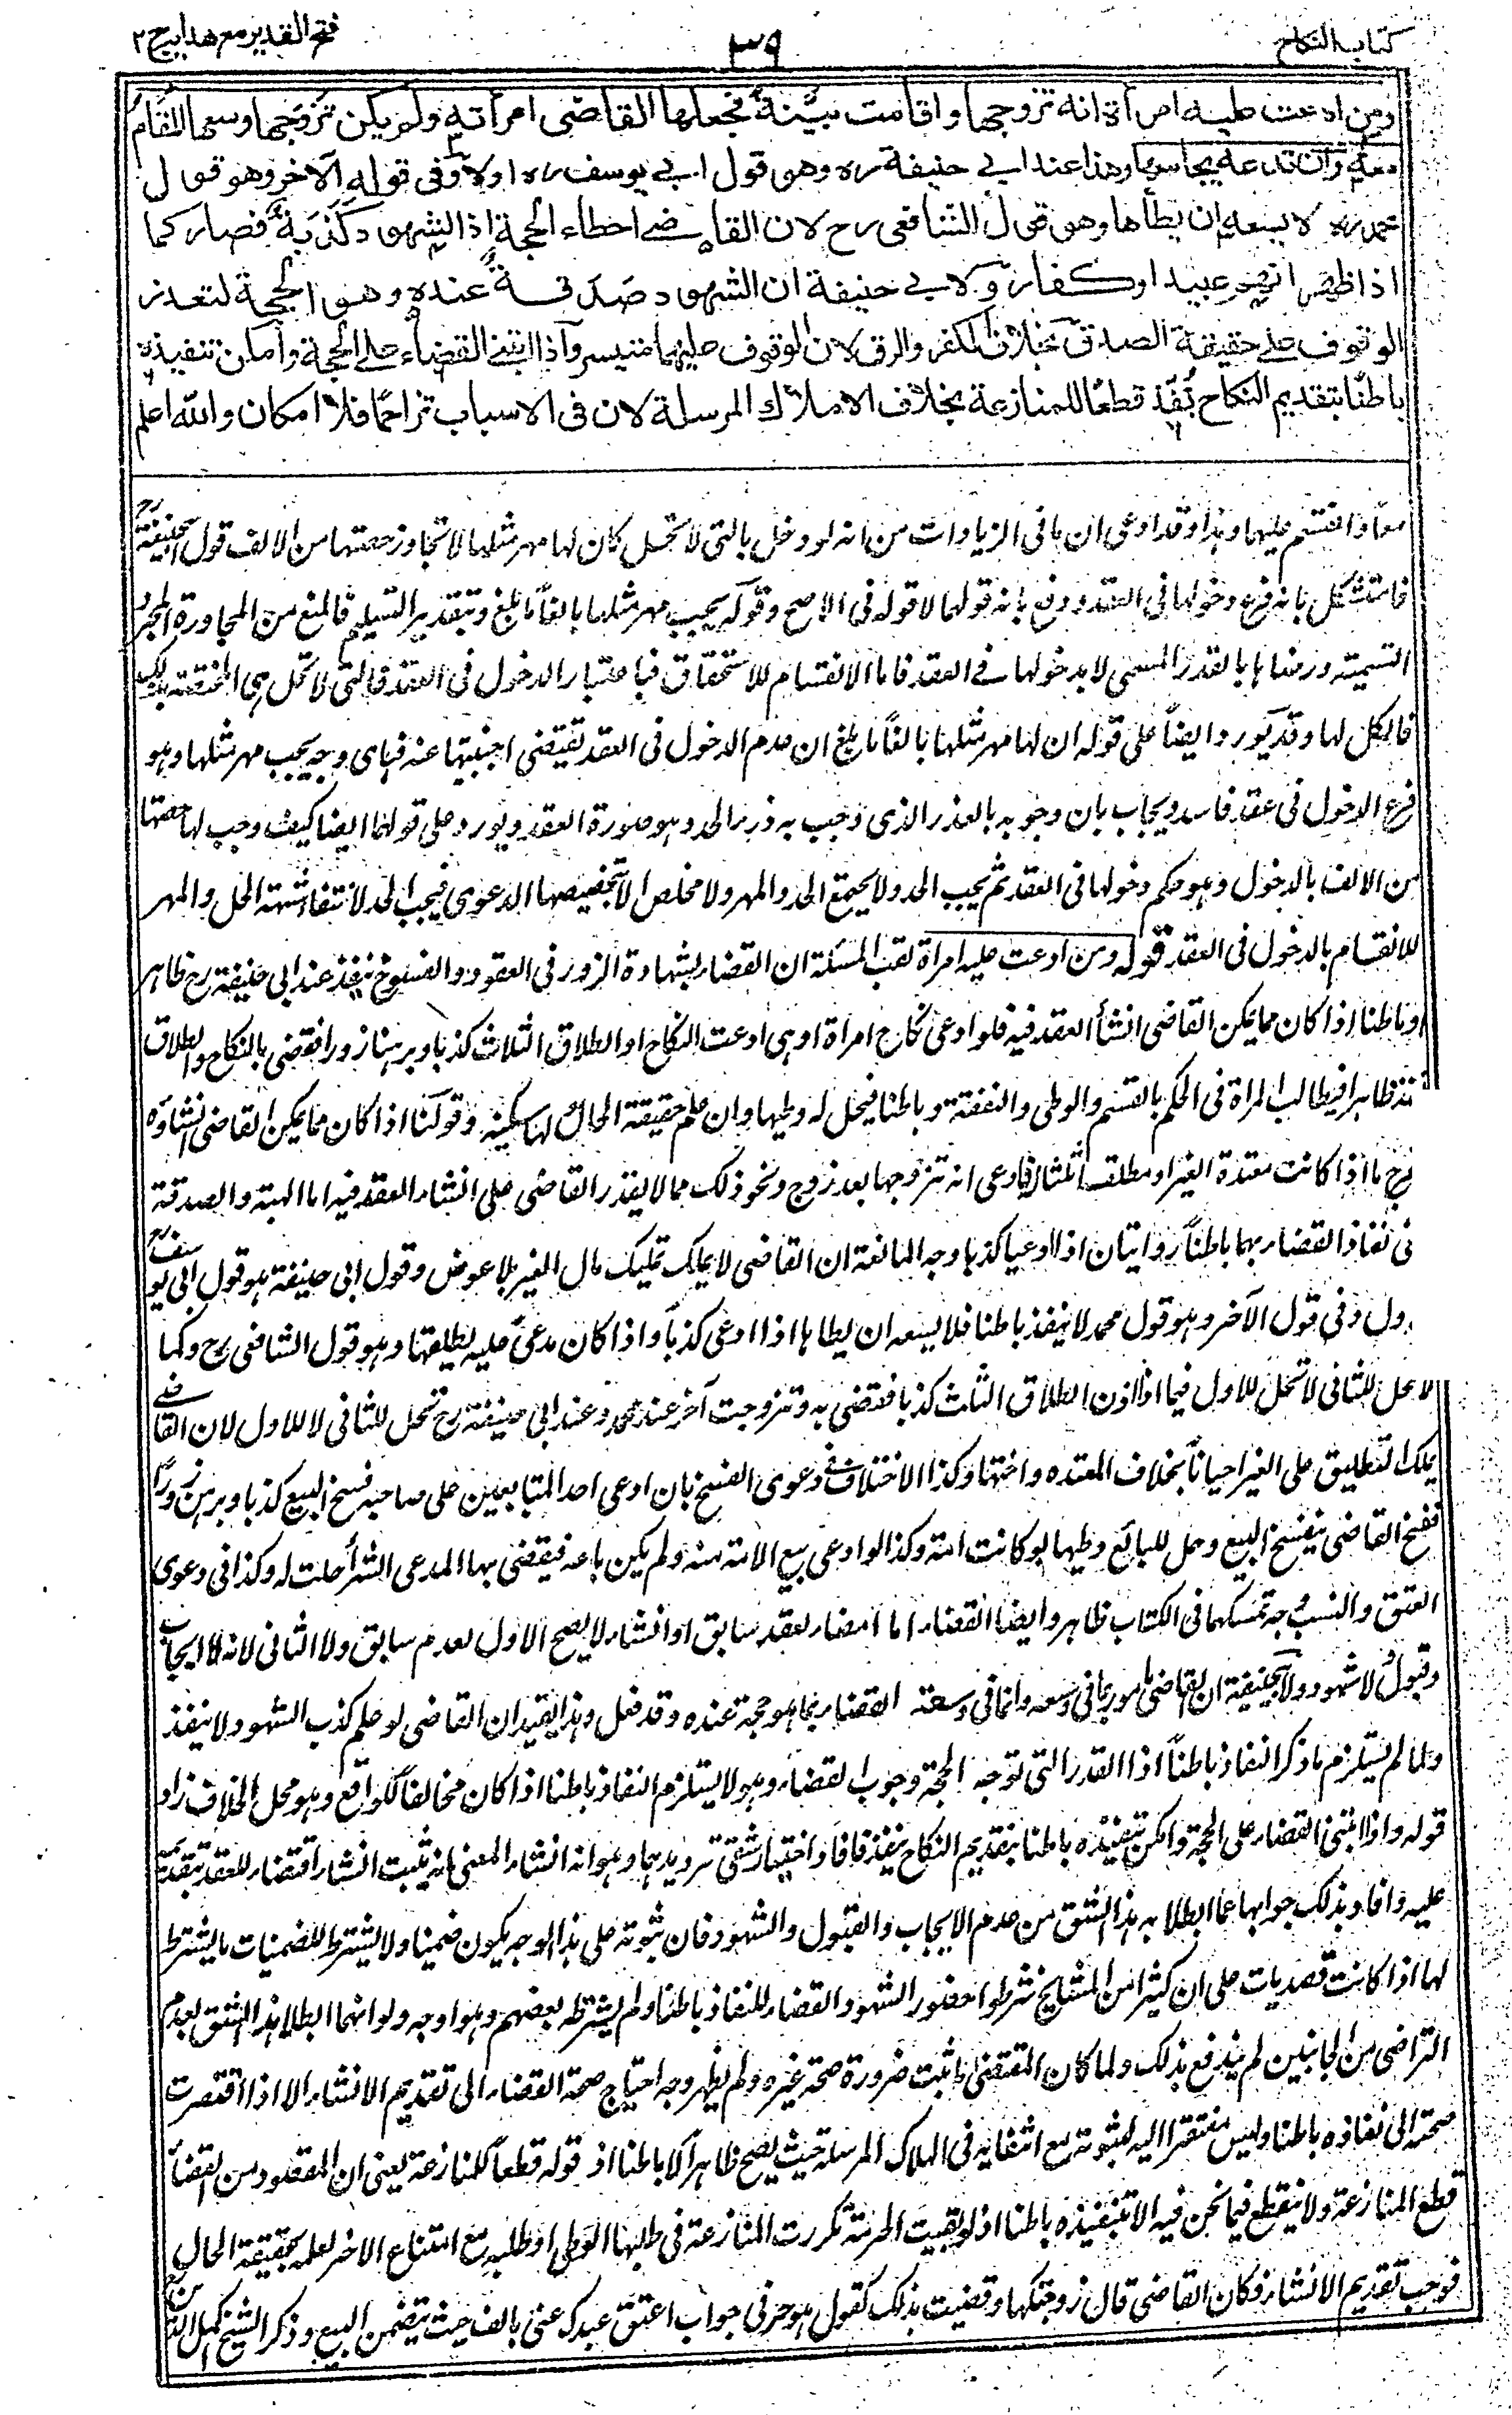 كتاب النكاح
٣٩
فتح القدير مع هدايه ج ٢
ومن ادعت عليه امرأة انه تزوجها واقامت بينة فجعلها القاضى امرأته ولم يكن تزوجها وسعها المقام
معه وان تدعه يجامعها وهذا عند ابي حنيفة ره وهو قول ابي يوسف ره اولا وفى قوله الآخر وهو قول
محمد ره لا يسعه ان يطأها وهو قول الشافعى رح لان القاضي اخطاء الحجة اذ الشهود كذبة فصار كما
اذا ظهر انهم عبيد او كفار ولابي حنيفة ان الشهود صدقة عنده وهو الحجة لتعذر
الوقوف على حقيقة الصدق بخلاف الكفر والرق لان الوقوف عليهما متيسر واذا ابتني القضاء على الحجة وامكن تنفيذه
باطنا بتقديم النكاح نفذ قطعا للمنازعة بخلاف الاملاك المرسلة لان فى الاسباب تزاحما فلا امكان والله اعلم
معا والقسم عليهما وهذا وقد ادعى ان ما فى الزيادات من انه لو دخل بالتى لا تحل كان لها مهر مثلها لا تجاوز حصتها من الالف قول ابيحنيفة رح
فاستشكل بانه فرع دخولها فى العقد ودفع بانه قولهما لا قوله فى الاصح وقوله يجب مهر مثلها بالغا ما بلغ وبتقدير التسليم فالمنع من المجاورة لمجرد
التسمية ورضاها بالقدر المسمى لا بدخولها فى العقد فاما الانقسام للاستحقاق فباعتبار الدخول فى العقد فالتى لا تحل هى المختصة بذلك
فالكل لها وقد يورد ايضا على قوله ان لها مهر مثلها بالغا ما بلغ ان عدم الدخول فى العقد تقتضى اجنبيتها عنه فباى وجه يجب مهر مثلها وهو
فرع الدخول فى عقد فاسد ويجاب بان وجوبه بالعذر الذى وجب به درء الحد وهو صورة العقد ويورد على قولهما ايضا كيف وجب لها حصتها
من الالف بالدخول وهو حكم دخولها فى العقد ثم يجب الحد ولا يجتمع الحد والمهر ولا مخلص الا بتخصيصهما الدعوى فيجب الحد لانتفاء شبهة الحل والمهر
للانقسام بالدخول فى العقد قوله ومن ادعت عليه امراة لقب المسئلة ان القضاء بشهادة الزور فى العقود والفسوخ ينفذ عند ابى حنيفة رح ظاهرا
وباطنا اذا كان مما يمكن القاضى انشأ العقد فيه فلو ادعى نكاح امراة او هى ادعت النكاح او الطلاق الثلاث كذبا وبرهنا زورا فقضى بالنكاح والطلاق
نفذ ظاهرا فيطالب المراة فى الحكم بالقسم والوطى والنفقة وباطنا فيحل له وطيها وان علم حقيقة الحال ولها تمكينه وقولنا اذا كان مما يمكن القاضى انشاؤه
يخرج ما اذا كانت معتدة الغير او مطلقته الثلاث فادعى انه تزوجها بعد زوج ونحو ذلك مما لا يقدر القاضى على انشاء العقد فيه اما الهبة والصدقة
فى نفاذ القضاء بهما باطنا روايتان اذا ادعيا كذبا وجه المانعة ان القاضى لا يملك تمليك مال الغير بلا عوض وقول ابى حنيفة هو قول ابى يوسف رح
الاول وفى قول الآخر وهو قول محمد لا ينفذ باطنا فلا يسعه ان يطاها اذا ادعى كذبا واذا كان مدعى عليه يطلقها وهو قول الشافعى رح وكما
لا تحل للثانى لا تحل للاول فيما اذا ادعت الطلاق الثلث كذبا فقضى به وتزوجت آخر عند محمد وعند ابى حنيفة رح تحل للثانى لا للاول لان القاضى
يملك التطليق على الغير احيانا بخلاف المعتده واختها وكذا الاختلاف فى دعوى الفسخ بان ادعى احد المتبايعين على صاحبه فسخ البيع كذبا وبرهن زورا
ففسخ القاضى ينفسخ البيع وحل للبائع وطيها لو كانت امة وكذا لو ادعى بيع الامة منه ولم يكن باعه فيقضى بها المدعى الشرأ حلت له وكذا فى دعوى
العتق والنسب وجه تمسكهما فى الكتاب ظاهر وايضا القضاء اما امضاء لعقد سابق او انشاء لا يصح الاول لعدم سابق ولا الثانى لانه لا ايجاب
وقبول ولا شهود ولابيحنيفة ان القاضى مامور بما فى وسعه وانما فى وسعه القضاء بما هو حجة عنده وقد فعل وهذا يفيد ان القاضى لو علم كذب الشهود لا ينفذ
ولما لم يستلزم ما ذكر النفاذ باطنا اذا القدر التى توجه الحجة وجوب القضاء وهو لا يستلزم النفاذ باطنا اذا كان مخالفا للواقع وهو محل الخلاف زاد
قوله واذا ابتنى القضاء على الحجة وامكن تنفيذه باطنا بتقديم النكاح ينفذ فافاد اختيار شقى ترديدهما وهو انه انشاء المعنى انه يثبت انشاء اقتضاء للعقد بتقدمه
عليه وافاد بذلك جوابها عما ابطلا به هذا الشق من عدم الايجاب والقبول والشهود فان ثبوته على هذا الوجه يكون ضمنيا ولا يشترط للضمنيات ما يشترط
لها اذا كانت قصديات على ان كثيرا من المشايخ شرطوا حضور الشهود القضاء للنفاذ باطنا ولم يشترطه بعضهم وهو اوجه ولو انهما ابطلا هذا الشق بعدم
التراضى من الجانبين لم يندفع بذلك ولما كان المقتضى ما ثبت ضرورة صحة غيره ولم يظهر وجه احتياج صحة القضاء الى تقديم الانشاء الا اذا افتقرت
صحته الى نفاذه باطنا وليس مفتقرا اليه لثبوته مع انتفائه فى الاملاك المرسلة حيث يصح ظاهرا لا باطنا زاد قوله قطعا للمنازعة يعنى ان المقصود من القضاء
قطع المنازعة ولا ينقطع فيما نحن فيه الا بتنفيذه باطنا اذ لو بقيت الحرمة تكررت المنازعة فى طلبها الوطى او طلبه مع امتناع الاخر لعلمه بحقيقة الحال
فوجب تقديم الانشاء فكان القاضى قال زوجتكها وقضيت بذلك كقول هو حر فى جواب اعتق عبدك عنى بالف حيث يتضمن البيع وذكر الشيخ اكمل الدين